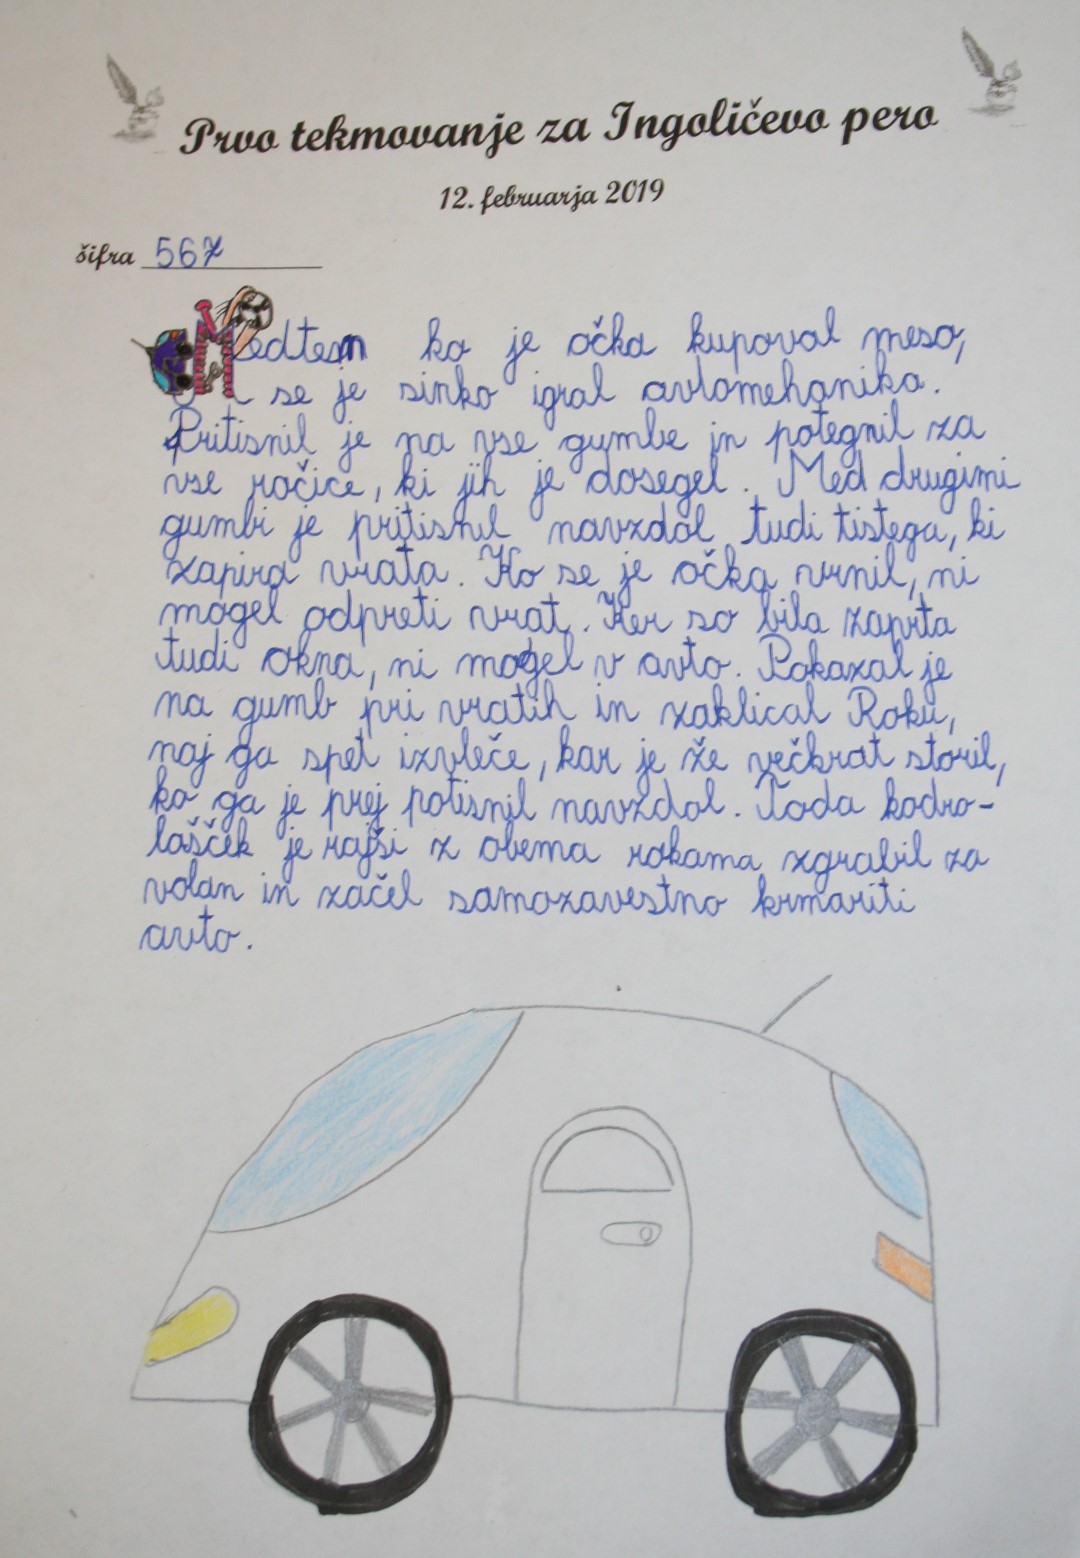 Prvo tekmovanje za Ingoličevo pero
12. februarja 2019
šifra 567
Medtem ko je očka kupoval meso,
se je sinko igral avtomehanika.
Pritisnil je na vse gumbe in potegnil za
vse ročice, ki jih je dosegel. Med drugimi
gumbi je pritisnil navzdol tudi tistega, ki
zapira vrata. Ko se je očka vrnil, ni
mogel odpreti vrat. Ker so bila zaprta
tudi okna, ni mogel v avto. Pokazal je
na gumb pri vratih in zaklical Roku,
naj ga spet izvleče, kar je že večkrat storil,
ko ga je prej potisnil navzdol. Toda kodro-
lašček je rajši z obema rokama zgrabil za
volan in začel samozavestno krmariti
avto.